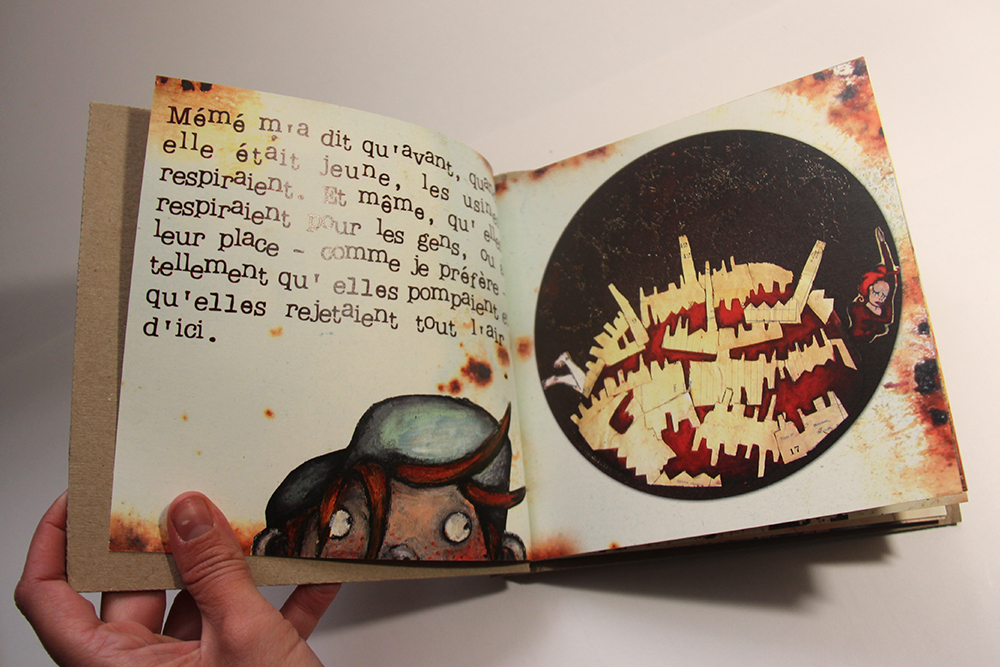 Mémé m'a dit qu'avant,
elle était jeune, les
respiraient. Et même, qu'
respiraient pour les gens, ou
leur place - comme je préfère -
tellement qu'elles pompaient
qu'elles rejetaient tout l'air
d'ici.
17